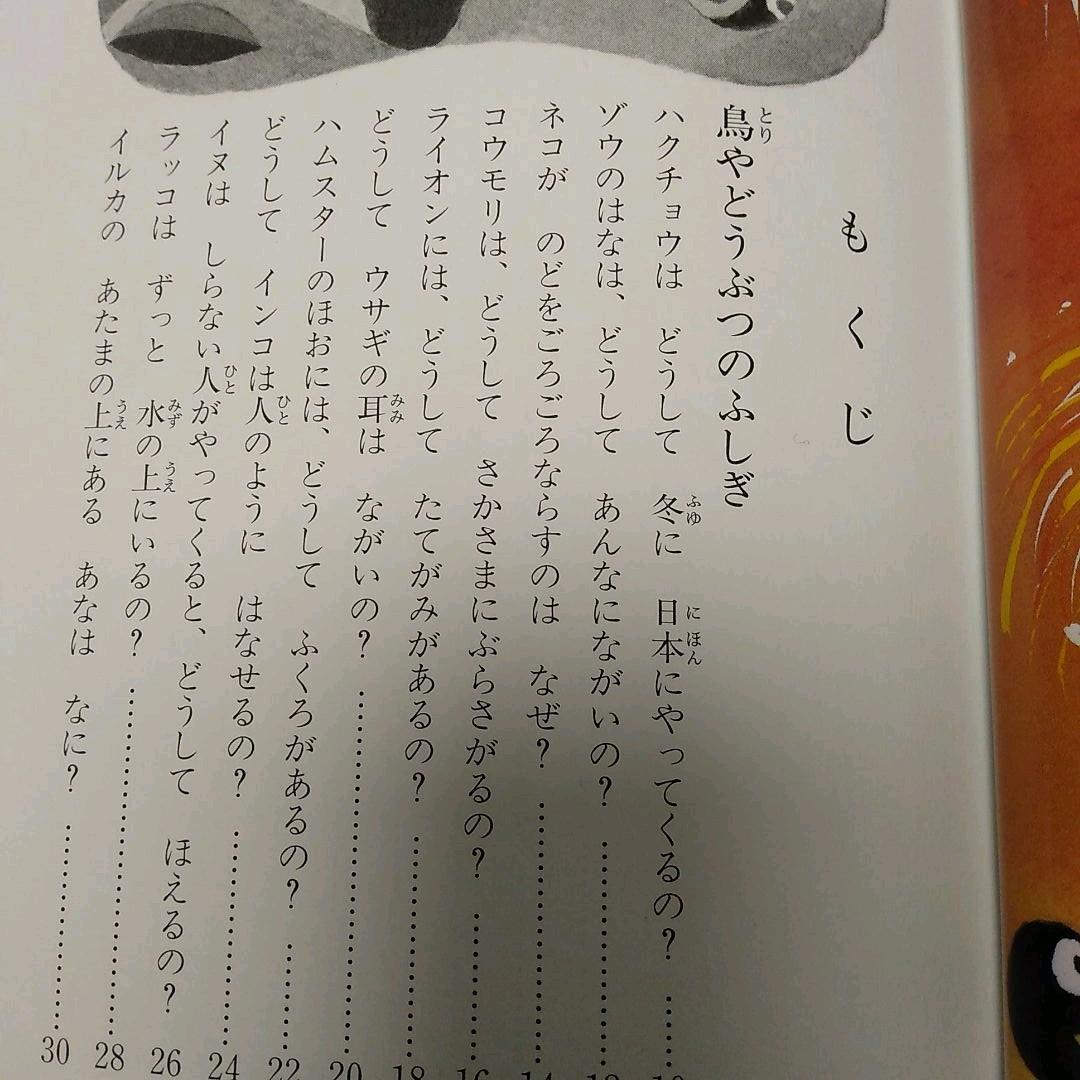 もくじ
鳥やどうぶつのふしぎ
とり
ハクチョウは　どうして　冬に　日本にやってくるの？…………
ふゆ
にほん
ゾウのはなは、どうして　あんなにながいの？…………
ネコが　のどをごろごろならすのは　なぜ？…………
コウモリは、どうして　さかさまにぶらさがるの？…………
ライオンには、どうして　たてがみがあるの？…………18
どうして　ウサギの耳は　ながいの？…………20
みみ
ハムスターのほおには、どうして　ふくろがあるの？…………22
どうして　インコは人のように　はなせるの？…………24
ひと
イヌは　しらない人がやってくると、どうして　ほえるの？26
ひと
ラッコは　ずっと　水の上にいるの？…………28
みず
うえ
イルカの　あたまの上にある　あなは　なに？…………30
うえ